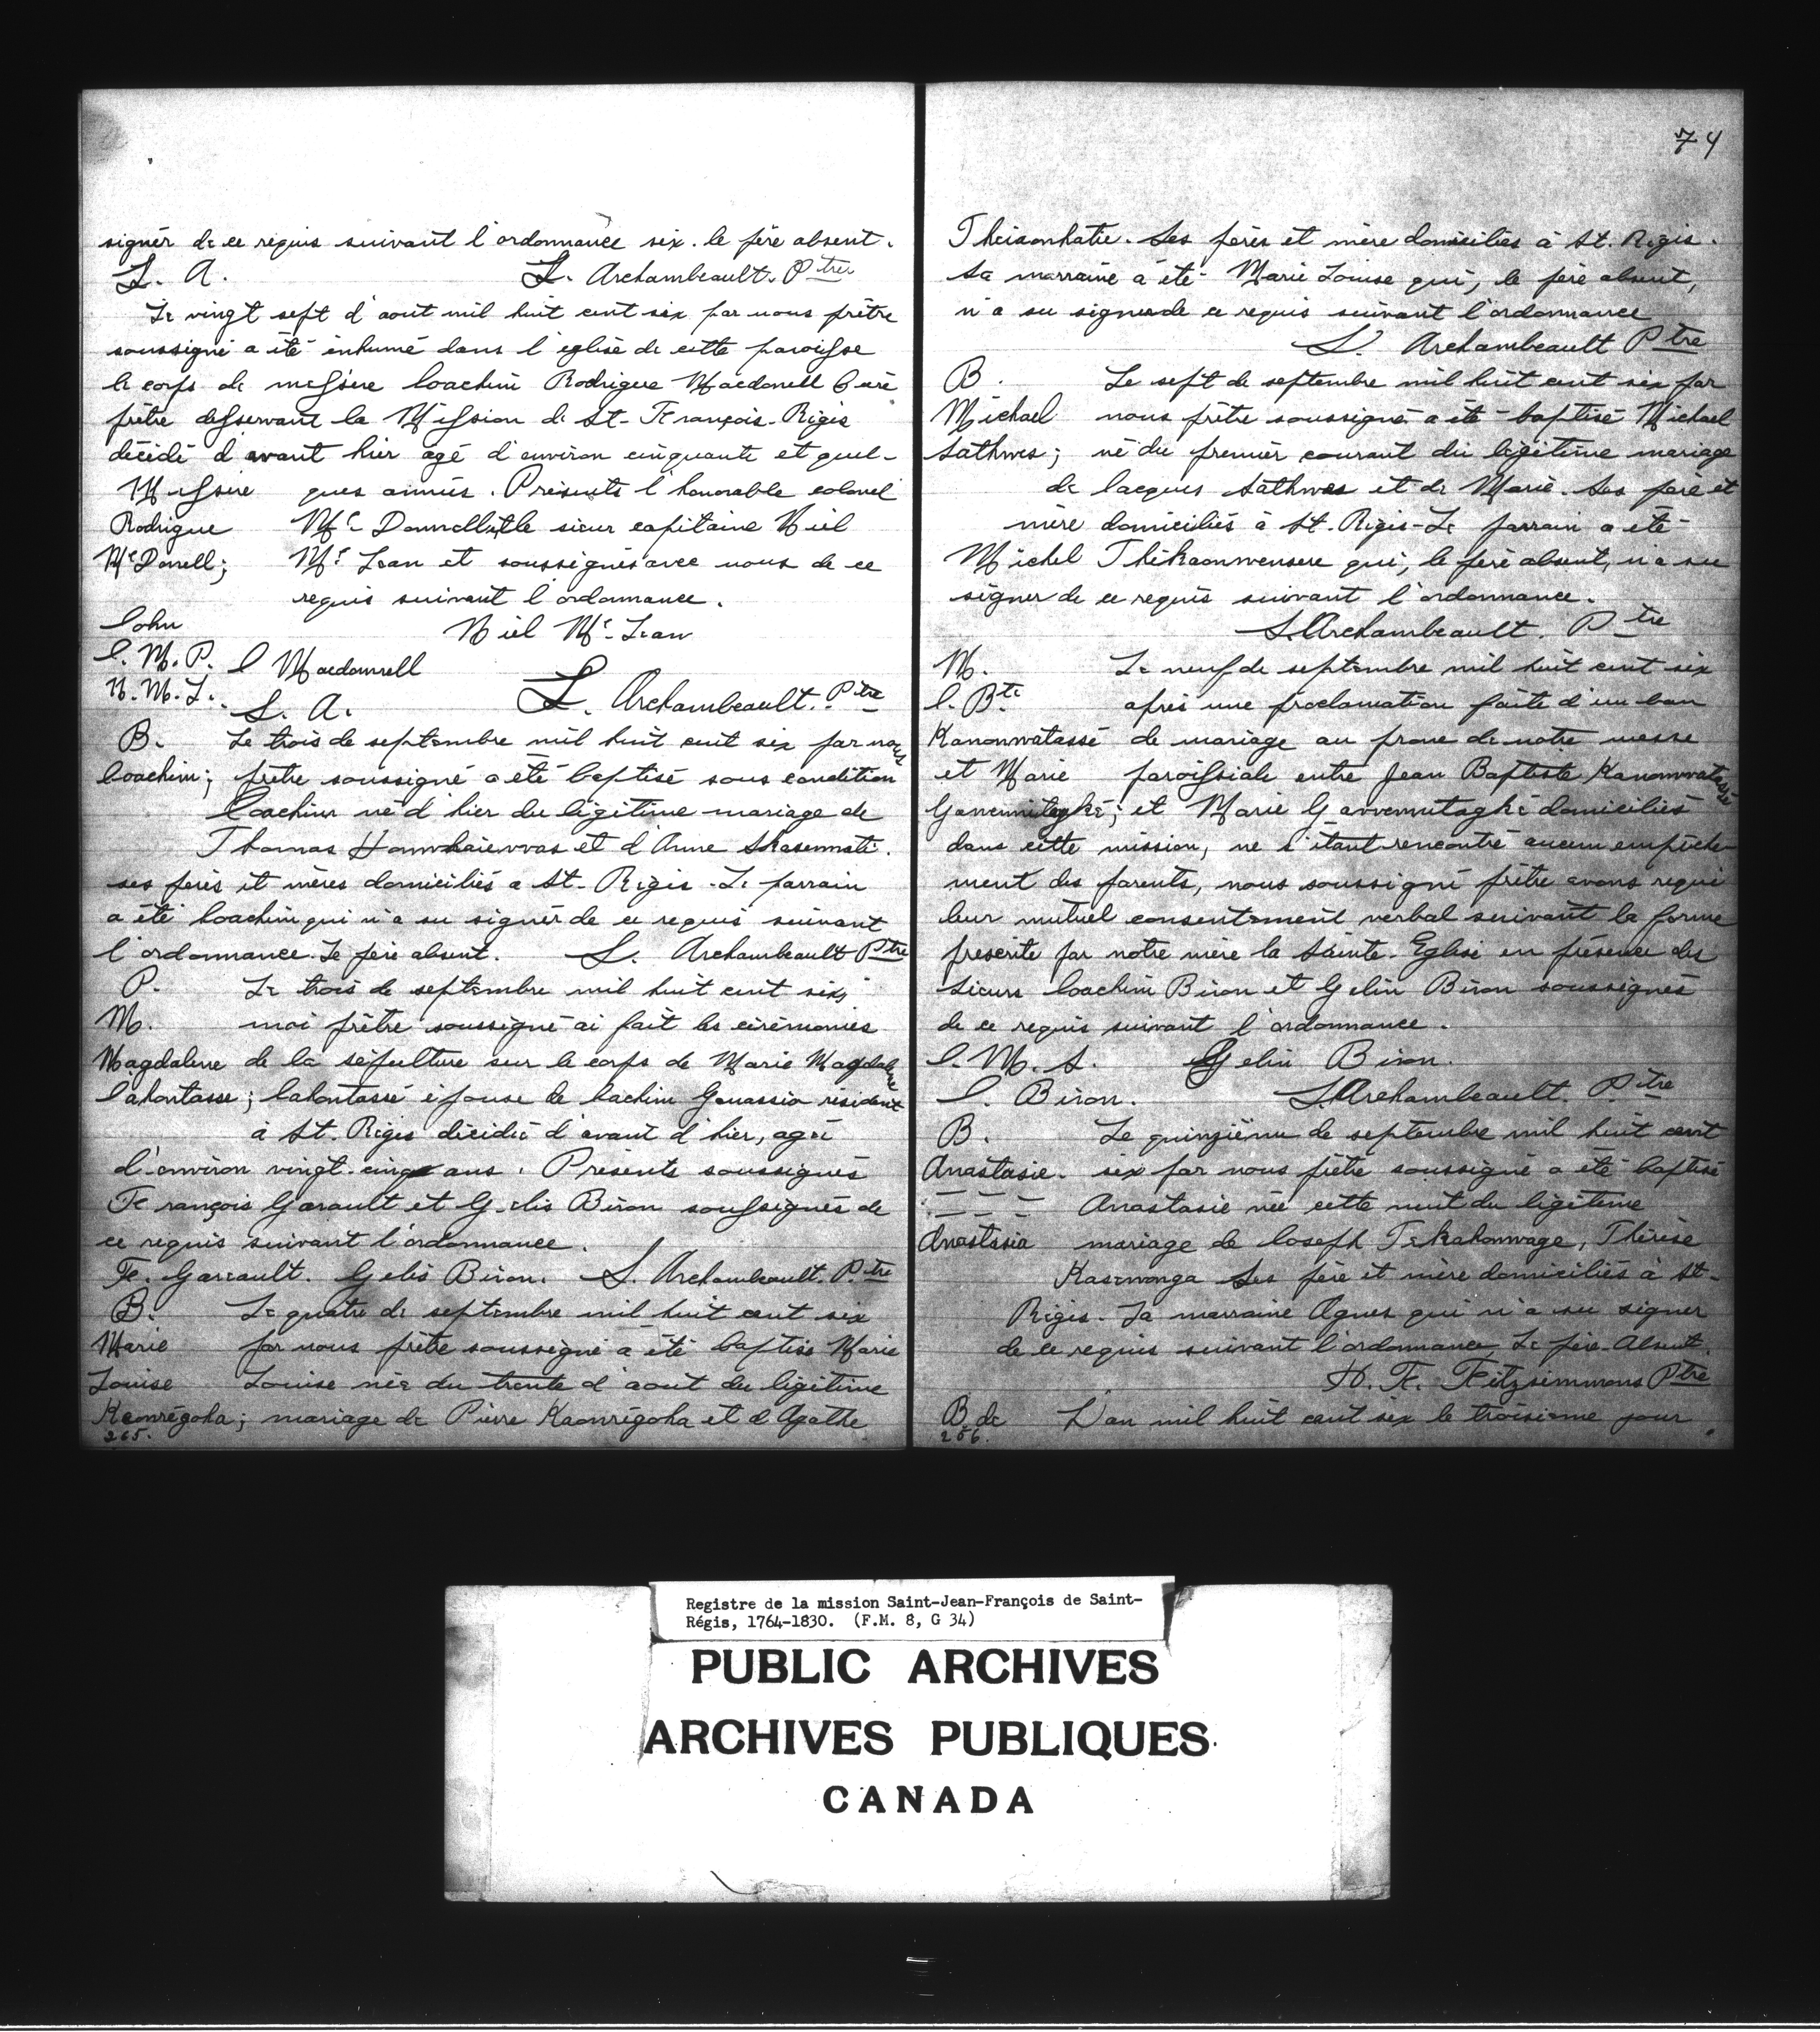 signér de ce requis suivant l'ordonnance six. le père absent.
L. A. L. Archambeault. Ptre
Le vingt sept d'aout mil huit cent six par nous prêtre
soussigné a été inhumé dans l'eglise de cette paroisse
le corps de messire Ioachim Rodrigue Macdonell Curé
prêtre desservant la Mission de St-François-Régis
décidé d'avant hier agé d'environ cinquante et quel-
Messire ques années. Présents l'honorable colonel
Rodrigue Mc Donnell et le sieur capitaine Niel
Mc Donell; Mc Lean et soussignés avec nous de ce
requis suivant l'ordonnance.
Iohn Niel Mc Lean
I. M. P. I Macdonnell
N. M. L. L. A. L. Archambeault. Ptre
B. Le trois de septembre mil huit cent six par nous
Ioachim; prêtre soussigné a été baptisé sous condition
Ioachim né d'hier du légitime mariage de
Thomas et d'Anne
ses pères et mères domiciliés a St-Régis. Le parrain
a été Ioachim qui n'a su signér de ce requis suivant
l'ordonnance. Le père absent. L. Archambeault Ptre
P. Le trois de septembre mil huit cent six,
M. moi prêtre soussigné ai fait les cérémonies
Magdalene de la sépulture sur le corps de Marie Magdalene
Iahontasse; Iahontassé épouse de Iachim résident
à St. Régis décidée d'avant d'hier, agée
d'environ vingt-cinq ans. Présents soussignés
François Garault et Gelis Biron soussignés de
ce requis suivant l'ordonnance.
Fr. Gareault. Gelis Biron. L. Archambeault. Ptre
B. Le quatre de septembre mil huit cent six
Marie par nous prêtre soussigné a été baptisé Marie
Louise Louise née du trente d'aout du légitime
Kaonrégoha; mariage de Pierre Kaonrégoha et d'Agathe
265.
74
Theisonhatie. Ses pères et mère domiciliés à St. Régis.
Sa marraine a été Marie Louise qui, le père absent,
n'a su signer de ce requis suivant l'ordonnance
L. Archambeault Ptre
B. Le sept de septembre mil huit cent six par
Michael nous prêtre soussigné a été baptisé Michael
Sathwes; né du premier courant du légitime mariage
de Iacques Sathwes et de Marie. Ses père et
mère domiciliés à St. Régis-Le parrain a été
Michel qui, le père absent, n'a su
signer de ce requis suivant l'ordonnance.
L. Archambeault. Ptre
M. Le neuf de septembre mil huit cent six
I. Bte après une proclamation faite d'un ban
Kanonwatassé de mariage au prone de notre messe
et Marie paroissiale entre Jean Baptiste Kanonwatassé
et Marie domiciliés
dans cette mission, ne s'étant rencontré aucun empêche-
ment des parents, nous soussigné prêtre avons requi
leur mutuel consentement verbal suivant la forme
prescrite par notre mère la Sainte-Eglise en présence des
Sieurs Ioachim Biron et Gelin Biron soussignés
de ce requis suivant l'ordonnance.
I. M. S. Gelin Biron.
I. Biron. L. Archambeault. Ptre
B. Le quinzième de septembre mil huit cent
Anastasie. six par nous prêtre soussigné a été baptisé
Anastasie née cette nuit du légitime
Anastasia mariage de Ioseph Tekahonwage, Thérèse
Kasenonga Ses père et mère domiciliés à St-
Régis. Sa marraine Agnes qui n'a su signer
de ce requis suivant l'ordonnance, Le père Absent.
H. F. Fitzsimmons Ptre
B. de L'an mil huit cent six le troisième jour
266.
Registre de la mission Saint-Jean-François de Saint-
Régis, 1764-1830. (F.M. 8, G 34)
PUBLIC ARCHIVES
ARCHIVES PUBLIQUES
CANADA